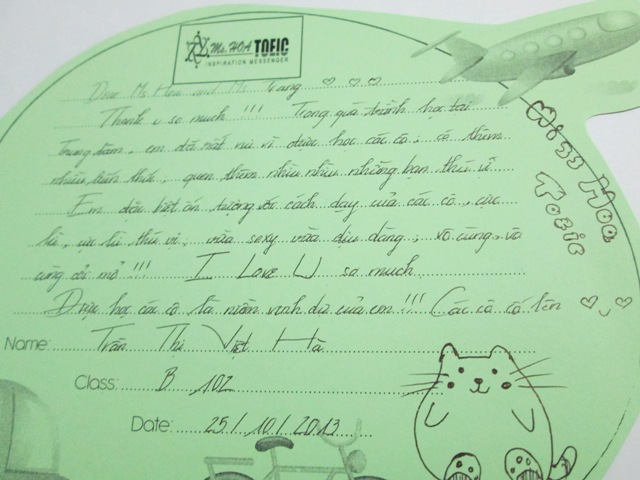 Ms. HOA TOEIC
INSPIRATION MESSENGER
Dear Ms Hoa and Ms Trang ♡ ♡ ♡
Thank u so much !!! Trong quá trình học tại
trung tâm, em đã rất vui vì được học các cô, có thêm
nhiều kiến thức, quen thêm nhiều những bạn thú vị
Em đặc biệt ấn tượng với cách dạy của các cô, cực
kì, cực kì thú vị, vừa sexy vừa dịu dàng, vô cùng, vô
cùng cởi mở !!! I Love U so much
Được học các cô là niềm vinh dự của em !!! Các cô cố lên ♡ ♡
Miss Hoa
Toeic
Name: Trần Thị Việt Hà
Class: B 102
Date: 25 / 10 / 2013